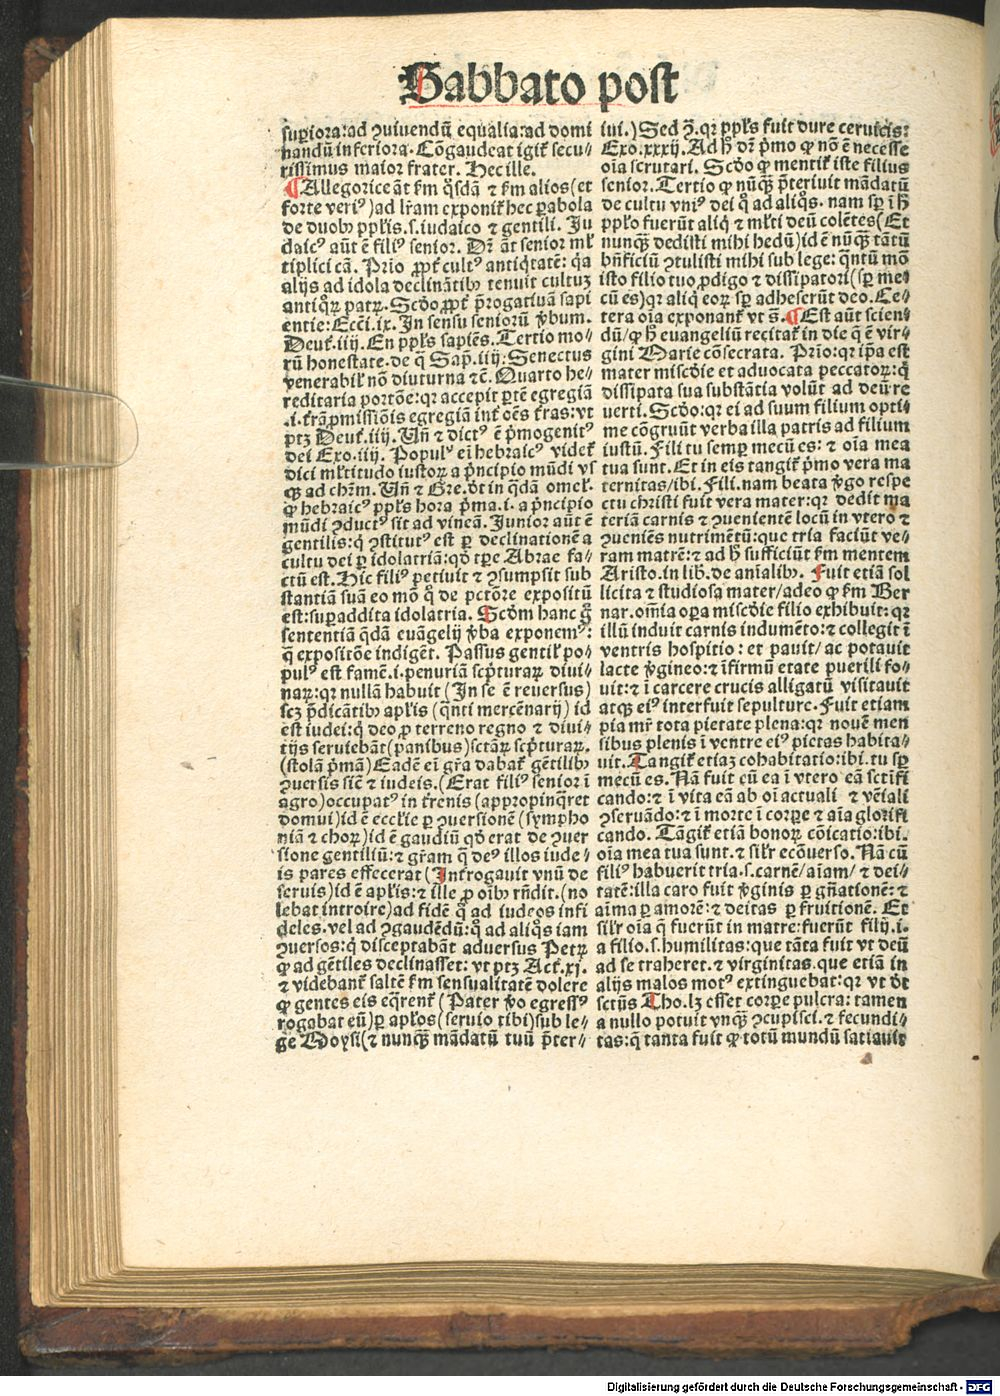 Sabbato post
suꝑiora:ad ꝯuiuendū equalia:ad domi
nandū inferiora. Cōgaudeat igit͛ secu⸗
rissimus maior frater. Hec ille.
¶Allegorice āt ẜm q̄sdā ⁊ ẜm alios(et
forte veriꝰ)ad lr̄am exponit͛ hec ꝑabola
de duobꝰ ppl̓is.s.iudaico ⁊ gentili. Ju
daicꝰ aūt ē filiꝰ senior. Dr̄ āt senior ml̓
tiplici cā. Prīo ꝓpt̓ cultꝰ antiq̄tatē: q̄a
alijs ad idola declinātibꝰ tenuit cultuꝫ
antiquoꝝ patꝝ. Scd̓o ꝓpt̓ p̄rogatiuā sapi
entie: Ecci.ix. In sensu seniorū ꝟbum.
Deut̓.iiij. En ppl̓s sapiēs. Tertio mo⸗
rū honestate. de q̄ Sap̄.iiij: Senectus
venerabil̓ nō diuturna ⁊c̄. Quarto he⸗
reditaria portōe: qꝛ accepit ꝑtē egregiā
.i. t̓rā ꝓmissiōis egregiā int̓ oēs t̓ras: vt
ptꝫ Deut̓.iiij. Uñ ⁊ dictꝰ ē p̄mogenitꝰ
dei Exo.iiij. Populꝰ em̄ hebraicꝰ videt̓
dici ml̓titudo iustoꝝ a p̄ncipio mūdi vs
qꝫ ad chr̄m. Uñ ⁊ Gre. dt̄ in q̄dā omel̓.
ꝙ hebraicꝰ ppl̓s hora p̄ma.i. a p̄ncipio
mūdi ꝯductꝰ sit ad vineā. Junior aūt ē
gentilis: q̄ ꝯstitutꝰ est ꝑ declinationē a
cultu dei ꝑ idolatriā: qd̓ tꝑe Abrae fa⸗
ctū est. Hic filiꝰ petiuit ⁊ ꝯsumpsit sub
stantiā suā eo mō q̄ de pctōre expositū
est: suꝑaddita idolatria. Scd̓m hanc g̊
sententiā q̄dā euāgelij ꝟba exponemꝰ:
q̄ expositōe indigēt. Passus gentil̓ po⸗
pulꝰ est famē.i. penuriā scp̄turaꝝ diui⸗
naꝝ: qꝛ nullā habuit (In se ē reuersus)
scꝫ p̄dicātibꝰ apl̓is (q̄nti mercēnarij) id
est iudei: q̄ deo ꝓ terreno regno ⁊ diui⸗
tijs seruiebāt(panibus)sctāꝝ scp̄turaꝝ.
(stolā p̄mā) Eadē em̄ gr̄a dabat̓ gētilibꝰ
ꝯuersis sic̄ ⁊ iudeis. (Erat filiꝰ senior ī
agro)occupatꝰ in t̓renis (appropinq̄ret
domui)id ē eccl̓ie ꝑ ꝯuersionē (sympho
niā ⁊ choꝝ)id ē gaudiū qd̓ erat de ꝯuer
sione gentiliū: ⁊ gr̄am q̄ deꝰ illos iude⸗
is pares effecerat (Int̓rogauit vnū de
seruis)id ē apl̓is: ⁊ ille ꝓ oībꝰ rn̄dit. (no
lebat introire)ad fidē q̊ ad iudeos infi
deles. vel ad ꝯgaudēdū: q̊ ad aliq̊s iam
ꝯuersos: q̄ disceptabāt aduersus Petꝝ
ꝙ ad gētiles declinasset: vt ptꝫ Act̓.xj.
⁊ videbant̓ saltē ẜm sensualitatē dolere
ꝙ gentes eis eq̄rent̓ (Pater ꝟo egressꝰ
rogabat eū)ꝑ apl̓os(seruio tibi)sub le⸗
ge Moysi(⁊ nunqꝫ mādatū tuū p̄ter⸗
iui.) Sed ꝯ̄. qꝛ ppl̓s fuit dure ceruicis:
Exo.xxxij. Ad h̄ dr̄ p̄mo ꝙ nō ē necesse
oīa scrutari. Scd̓o ꝙ mentit̓ iste filius
senior. Tertio ꝙ nūqꝫ p̄teriuit mādatū
de cultu vniꝰ dei q̊ ad aliq̊s. nam sꝑ ī h̄
ppl̓o fuerūt aliq̄ ⁊ ml̓ti deū colētes(Et
nunqꝫ dedisti mihi hedū)id ē nūqꝫ tātū
bn̄ficiū ꝯtulisti mihi sub lege: q̄ntū mō
isto filio tuo ꝓdigo ⁊ dissipatori(sꝑ me⸗
cū es)qꝛ aliq̄ eoꝝ sꝑ adheserūt deo. Ce⸗
tera oīa exponant̓ vt s̄. ¶Est aūt scien⸗
dū/ꝙ h̄ euangeliū recitat̓ in die q̄ ē vir⸗
gini Marie cōsecrata. Prīo: qꝛ ip̄a est
mater mīscd̓ie et aduocata peccatoꝝ: q̄
dissipata sua substātia volūt ad deū re
uerti. Scd̓o: qꝛ ei ad suum filium opti⸗
me cōgruūt verba illa patris ad filium
iustū. Fili tu semꝑ mecū es: ⁊ oīa mea
tua sunt. Et in eis tangit̓ p̄mo vera ma
ternitas/ibi. Fili. nam beata ꝟgo respe
ctu christi fuit vera mater: qꝛ dedit ma
teriā carnis ⁊ ꝯuenientē locū in vtero ⁊
ꝯueniēs nutrimētū: que tria faciūt ve⸗
ram matrē: ⁊ ad h̄ sufficiūt ẜm mentem
Aristo. in lib̓. de aīalibꝰ. Fuit etiā sol
licita ⁊ studiosa mater/adeo ꝙ ẜm Ber
nar. om̄ia oꝑa mīscd̓ie filio exhibuit: qꝛ
illū induit carnis indumēto: ⁊ collegit ī
ventris hospitio: et pauit/ ac potauit
lacte ꝟgineo: ⁊ īfirmū etate puerili fo⸗
uit: ⁊ ī carcere crucis alligatū visitauit
atqꝫ eiꝰ interfuit sepulture. Fuit etiam
pia mr̄ tota pietate plena: qꝛ nouē men
sibus plenis ī ventre eiꝰ pietas habita⸗
uit. Tangit̓ etiaꝫ cohabitatio: ibi. tu sꝑ
mecū es. Nā fuit cū ea ī vtero eā sctīfi
cando: ⁊ ī vita eā ab oī actuali ⁊ vēiali
ꝯseruādo: ⁊ ī morte ī corꝑe ⁊ aīa glorifi
cando. Tāgit̓ etiā bonoꝝ cōicatio: ibi.
oīa mea tua sunt. ⁊ sil̓r ecōuerso. Nā cū
filiꝰ habuerit tria.s. carnē/aīam/ ⁊ dei⸗
tatē: illa caro fuit ꝟginis ꝑ gn̄ationē: ⁊
aīma ꝑ amorē: ⁊ deitas ꝑ fruitionē. Et
sil̓r oīa q̄ fuerūt in matre: fuerūt filij.i.
a filio.s. humilitas: que tāta fuit vt deū
ad se traheret. ⁊ virginitas. que etiā in
alijs malos motꝰ extinguebat: qꝛ vt dt̄
sctūs Tho. lꝫ esset corꝑe pulcra: tamen
a nullo potuit vnqꝫ ꝯcupisci. ⁊ fecundi⸗
tas: q̄ tanta fuit ꝙ totū mundū satiauit
Digitalisierung gefördert durch die Deutsche Forschungsgemeinschaft - DFG